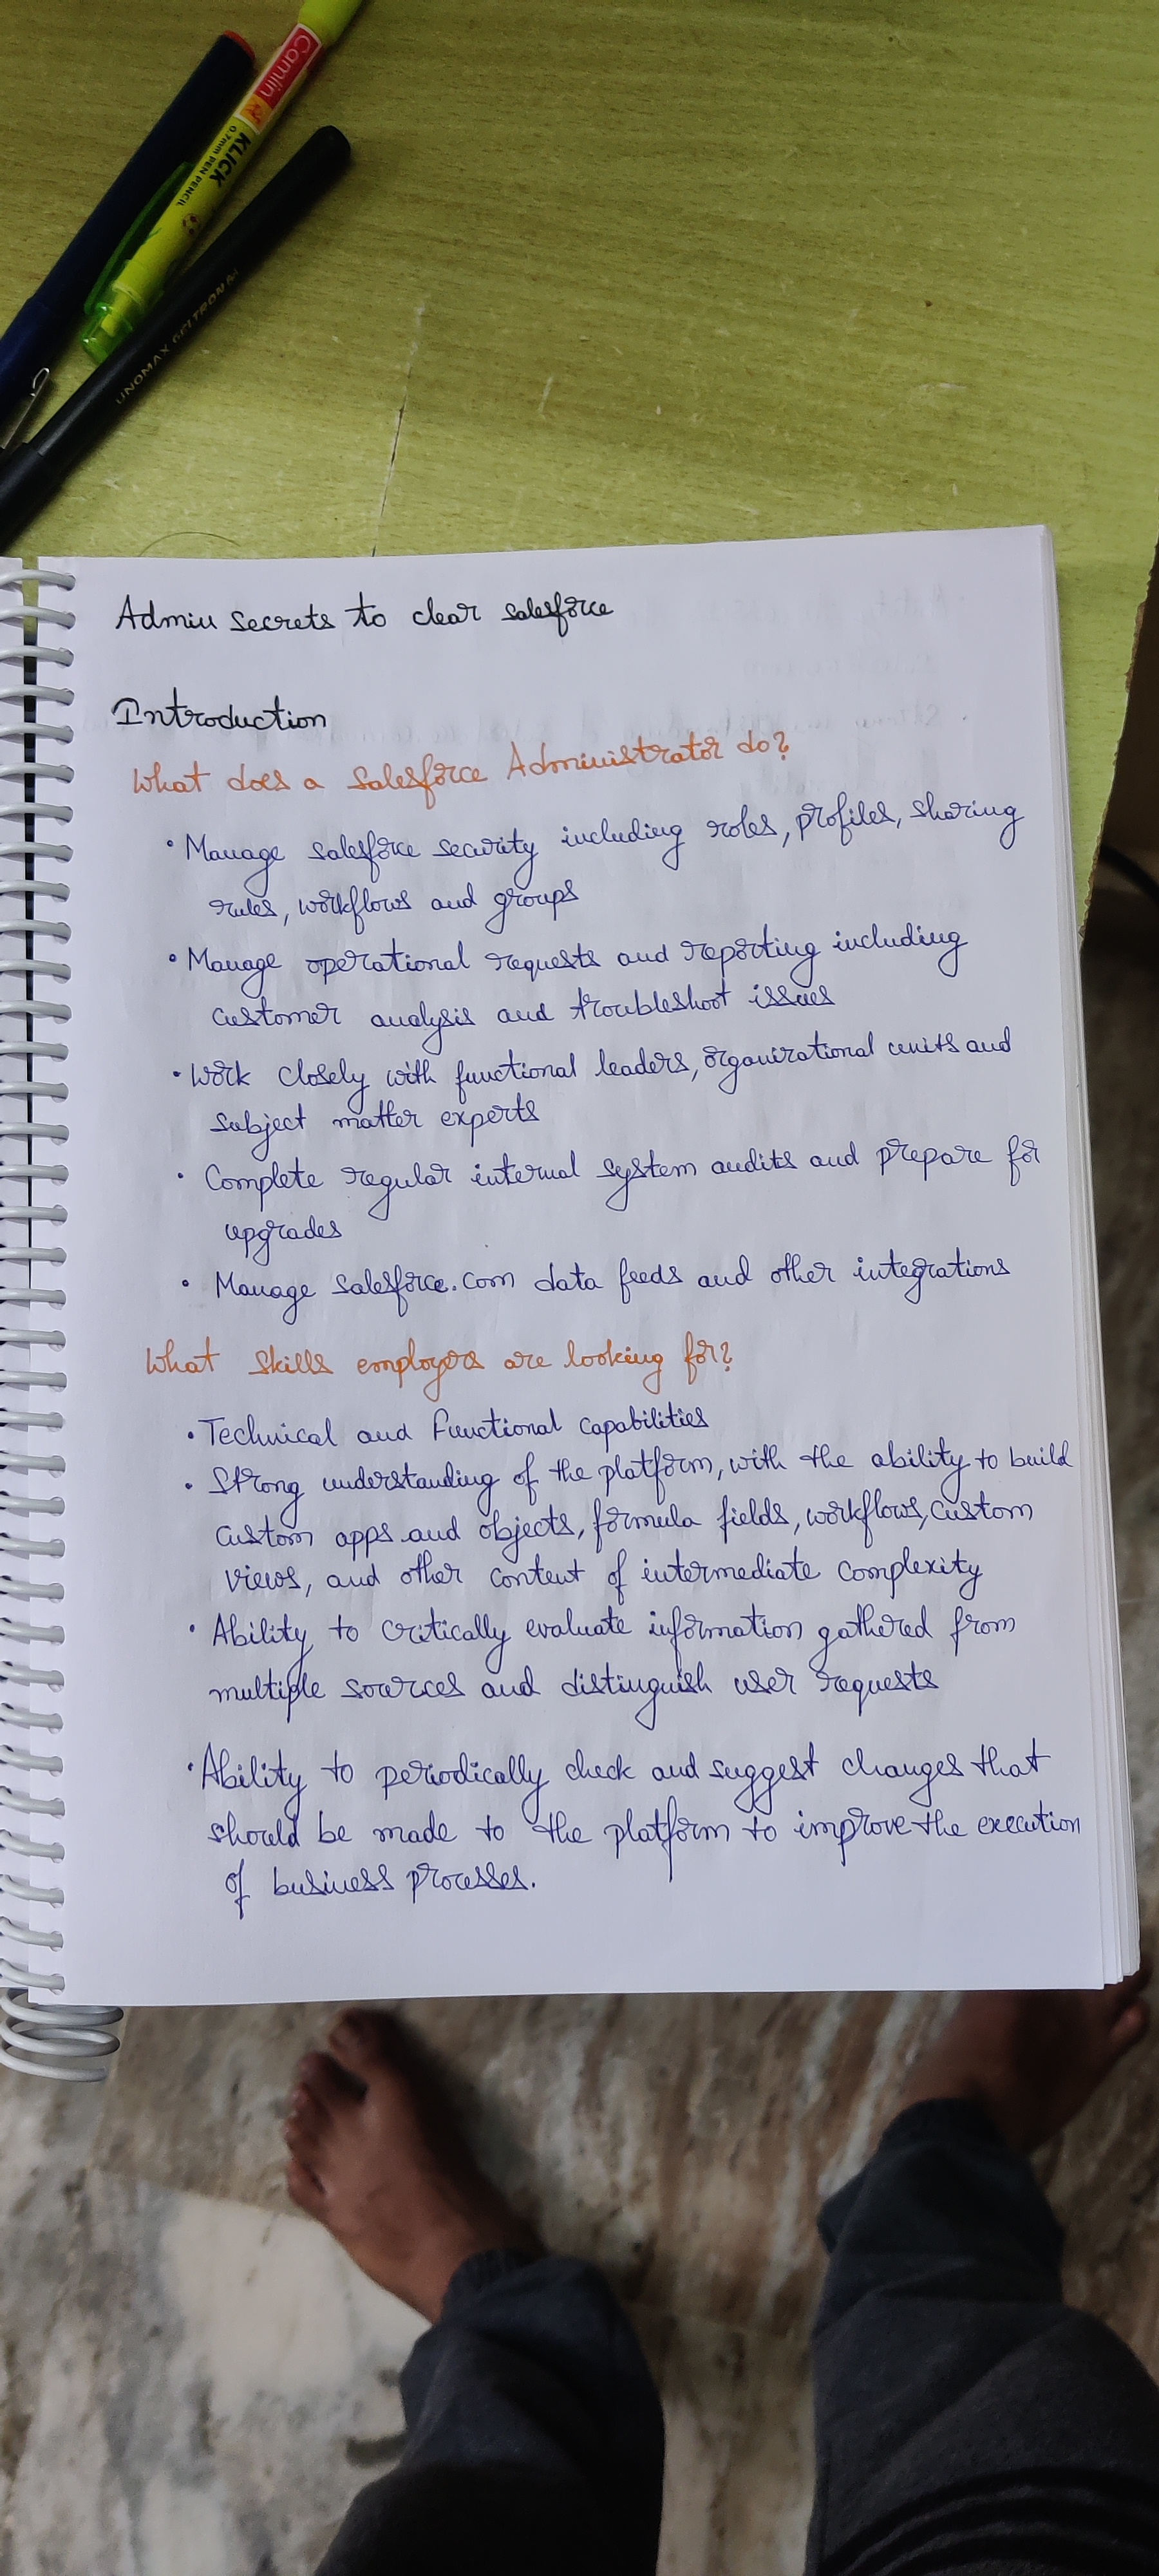 Camlin
KLICK
0.7mm PEN PENCIL
UNOMAX GELTRON
Admin secrets to clear salesforce
Introduction
What does a Salesforce Administrator do?
• Manage salesforce security including roles, profiles, sharing
rules, workflows and groups
• Manage operational requests and reporting including
customer analysis and troubleshoot issues
• Work closely with functional leaders, organizational units and
subject matter experts
• Complete regular internal system audits and prepare for
upgrades
• Manage salesforce.com data feeds and other integrations
What skills employers are looking for?
• Technical and Functional capabilities
• Strong understanding of the platform, with the ability to build
custom apps and objects, formula fields, workflows, custom
views, and other content of intermediate complexity
• Ability to critically evaluate information gathered from
multiple sources and distinguish user requests
• Ability to periodically check and suggest changes that
should be made to the platform to improve the execution
of business processes.